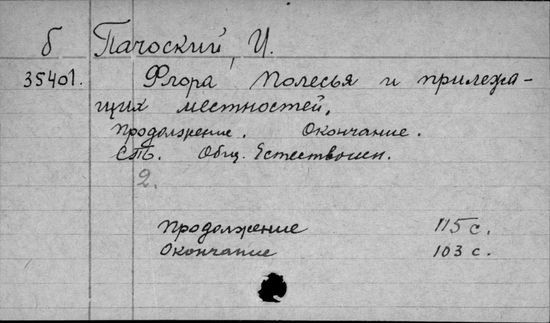 б Пачоский, И.
35401. Флора Полесья и прилежа-
щих местностей,
Продолжение. Окончание.
СПб. Общ. Естествоисп.
2.
Продолжение 115 с.
Окончание 103 с.